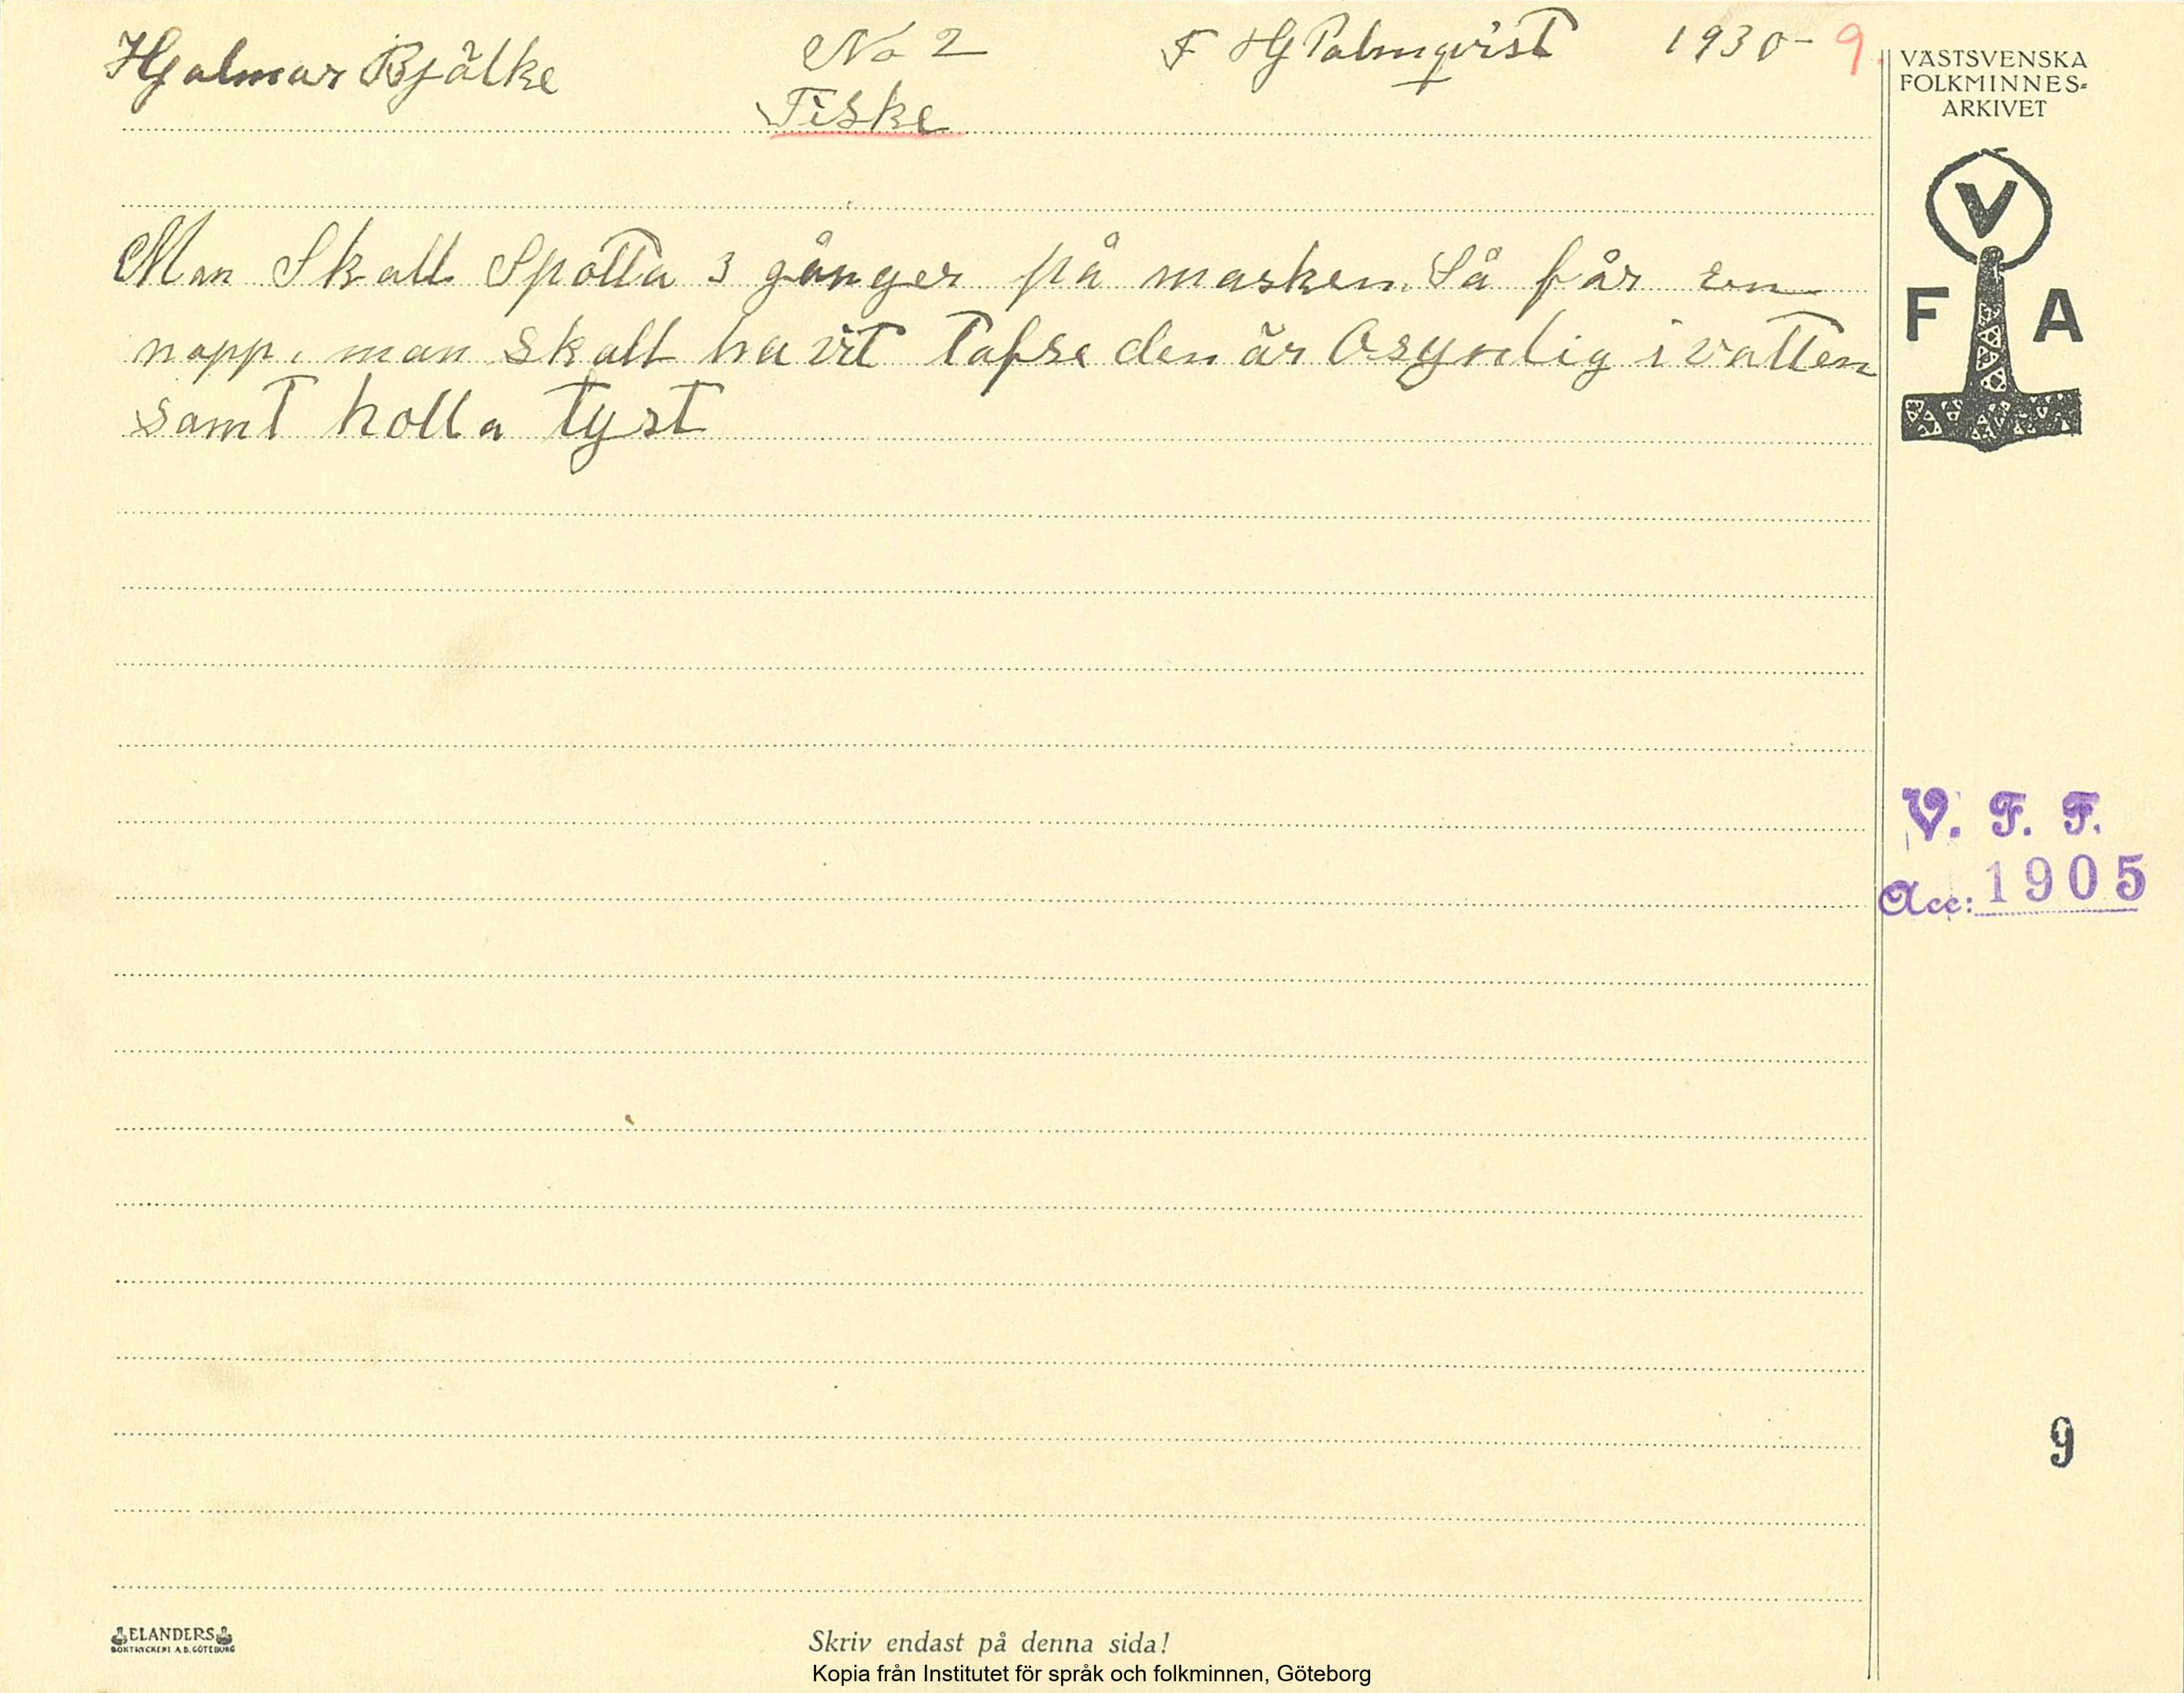 Hjalmar Bjälke No 2 F Hj Palmqvist 1930- 9.
Fiske
Man Skall Spotta 3 gånger på masken. Så får en
napp. man skall ha vit tafse den är Osynlig i vatten
samt holla tyst
VÄSTSVENSKA
FOLKMINNES=
ARKIVET
V
F A
V. F. F.
Acc: 1905
9
ELANDERS
BOKTRYCKERI A.B. GÖTEBORG
Skriv endast på denna sida!
Kopia från Institutet för språk och folkminnen, Göteborg